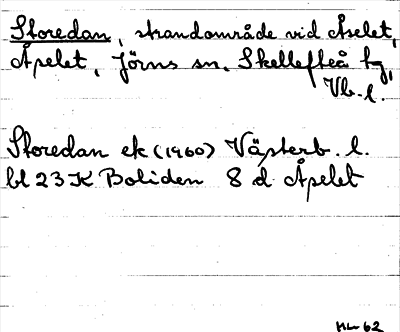 Storedan, strandområde vid Åselet,
Åselet, Jörns sn, Skellefteå tg,
Vb. l.
Storedan ek (1960) Västerb. l.
bl 23 K Boliden 8 d Åselet
HL 62